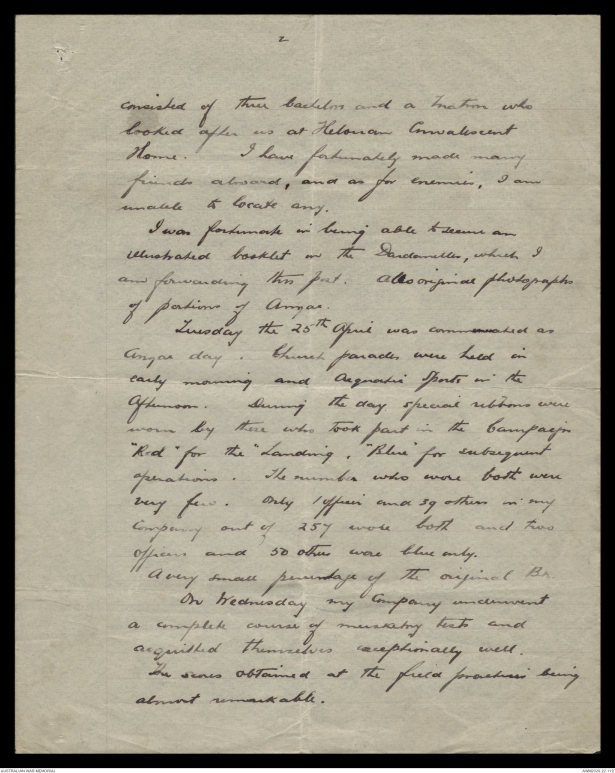 2
consisted of three bachelors and a matron who
looked after us at Helouan Convalescent
Home. I have fortunately made many
friends aboard, and as for enemies, I am
unable to locate any.
I was fortunate in being able to secure an
illustrated booklet on the Dardanelles, which I
am forwarding this post. Also original photographs
of portions of Anzac.
Tuesday the 25th April was commemorated as
Anzac day. Church parades were held in
early morning and Acquatic Sports in the
Afternoon. During the day special ribbons were
worn by those who took part in the Campaign
"Red" for the "Landing, "Blue" for subsequent
operations. The number who wore both were
very few. Only 1 officer and 39 others in my
Company out of 257 wore both and two
officers and 50 others wore blue only.
A very small percentage of the original Bn.
On Wednesday my Company underwent
a complete course of musketry tests and
acquitted themselves exceptionally well.
The scores obtained at the field practices being
almost remarkable.
AUSTRALIAN WAR MEMORIAL